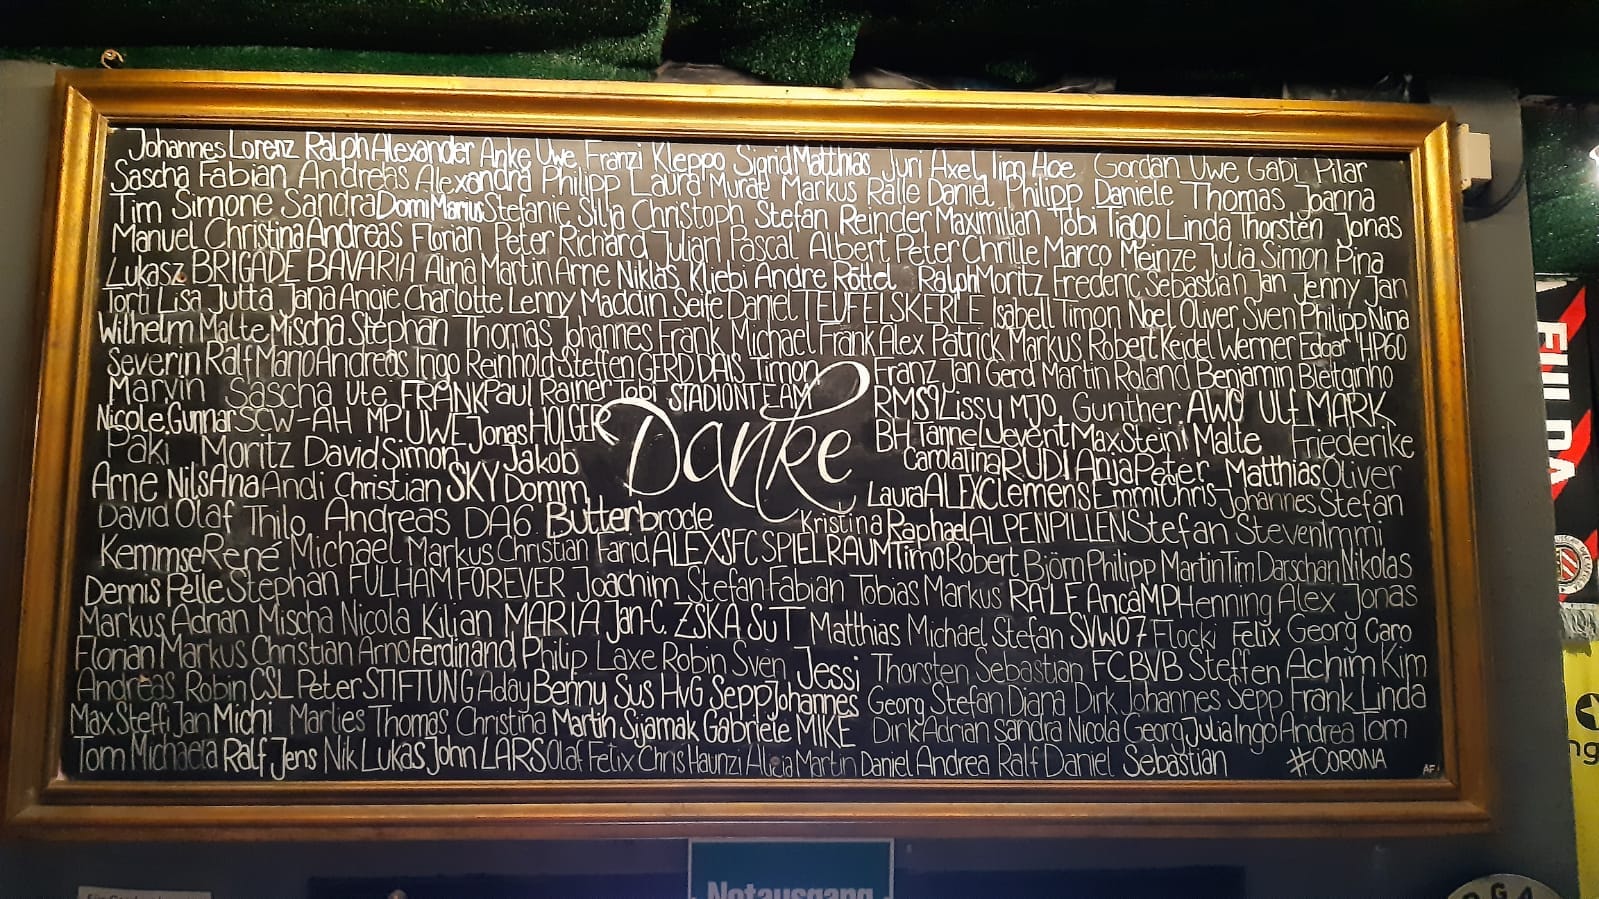 Johannes Lorenz Ralph Alexander Anke Uwe Franzi Kleppo Sigrid Matthias Juri Axel Tim Ace Gordan Uwe Gabi Pilar
Sascha Fabian Andreas Alexandra Philipp Laura Murat Markus Ralle Daniel Philipp Daniele Thomas Joanna
Tim Simone Sandra Domi Marius Stefanie Silja Christoph Stefan Reinder Maximilian Tobi Tiago Linda Thorsten Jonas
Manuel Christina Andreas Florian Peter Richard Julian Pascal Albert Peter Chrille Marco Meinze Julia Simon Pina
Lukasz BRIGADE BAVARIA Alina Martin Arne Niklas Kliebi Andre Röttel Ralph Moritz Frederic Sebastian Jan Jenny Jan
Torti Lisa Jutta Jana Angie Charlotte Lenny Maddin Seife Daniel TEUFELSKERLE Isabell Timon Noel Oliver Sven Philipp Nina
Wilhelm Malte Mischa Stephan Thomas Johannes Frank Michael Frank Alex Patrick Markus Robert Keidel Werner Edgar HP60
Severin Ralf Mario Andreas Ingo Reinhold Steffen GERD DAIS Timon Franz Jan Gerd Martin Roland Benjamin Bleitginho
Marvin Sascha Ute FRANK Paul Rainer Tobi STADIONTEAM RMS9 Lissy MJO Gunther AWO Ulf MARK
Nicole, Gunnar SCW-AH MP UWE Jonas HOLGER Danke BH Tanne Lyevent Max Steini Malte Friederike
Paki Moritz David Simon Jakob Carola Tina RUDI Anja Peter Matthias Oliver
Arne Nils Ana Andi Christian SKY Domm Laura ALEX Clemens Emmi Chris Johannes Stefan
David Olaf Thilo Andreas DA6 Butterbrode Kristina Raphael ALPENPILLEN Stefan Steven Immi
Kemmse René Michael Markus Christian Farid ALEX SFC SPIELRAUM Timo Robert Björn Philipp Martin Tim Darschan Nikolas
Dennis Pelle Stephan FULHAM FOREVER Joachim Stefan Fabian Tobias Markus RALF Anca MP Henning Alex Jonas
Markus Adrian Mischa Nicola Kilian MARIA Jan-C. ZSKA SuT Matthias Michael Stefan SVW07 Flocki Felix Georg Caro
Florian Markus Christian Arno Ferdinand Philip Laxe Robin Sven Jessi Thorsten Sebastian FC BVB Steffen Achim Kim
Andreas Robin CSL Peter STIFTUNG Aday Benny Sus HvG Sepp Johannes Georg Stefan Diana Dirk Johannes Sepp Frank Linda
Max Steffi Jan Michi Marlies Thomas Christina Martin Sijamak Gabriele MIKE Dirk Adrian Sandra Nicola Georg Julia Ingo Andrea Tom
Tom Michaela Ralf Jens Nik Lukas John LARS Olaf Felix Chris Haunzi Alicia Martin Daniel Andrea Ralf Daniel Sebastian #CORONA AF
Notausgang